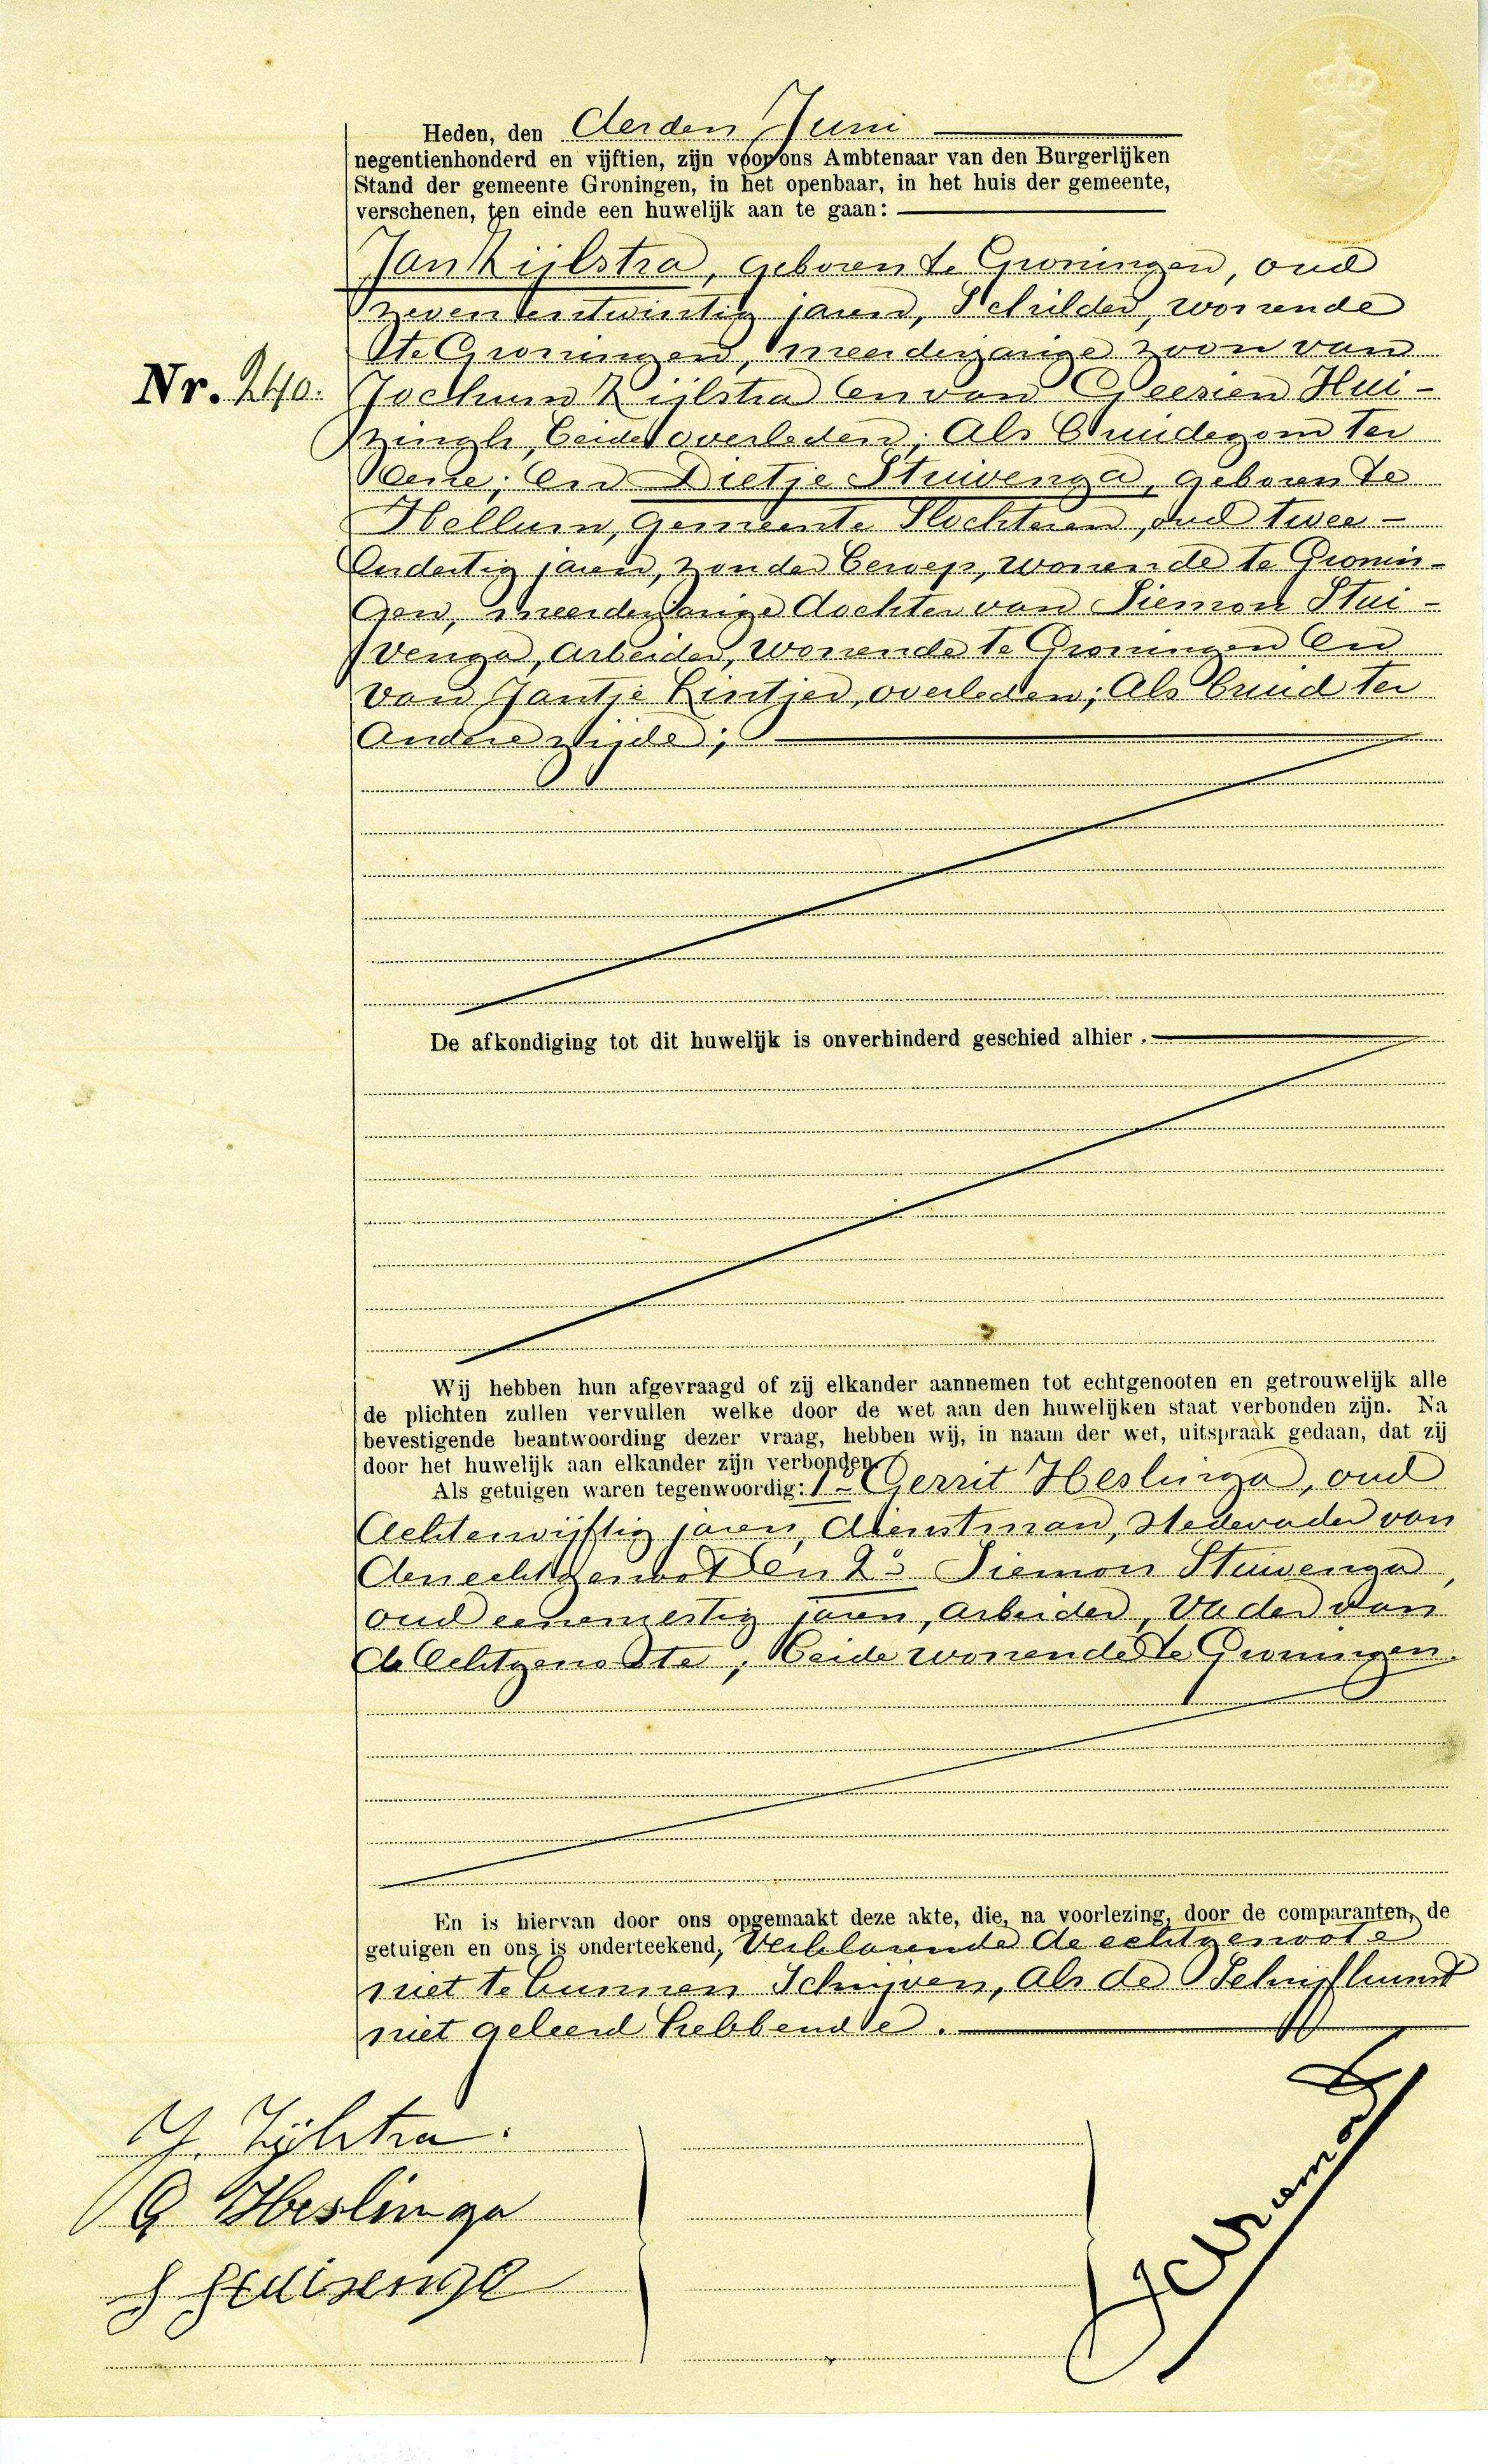 Heden, den derden Juni
negentienhonderd en vijftien, zijn voor ons Ambtenaar van den Burgerlijken
Stand der gemeente Groningen, in het openbaar, in het huis der gemeente,
verschenen, ten einde een huwelijk aan te gaan:
Jan Zijlstra, geboren te Groningen, oud
zevenentwintig jaren, Schilder, wonende
te Groningen, meerderjarige zoon van
Nr. 240.
Jochum Zijlstra en van Geesien Hui-
zingh, beide overleden; Als bruidegom ter
eene; en Dietje Stuivenga, geboren te
Hellum, gemeente Slochteren, oud twee-
endertig jaren, zonder beroep, wonende te Gronin-
gen, meerderjarige dochter van Siemon Stui-
venga, arbeider, wonende te Groningen en
van Jantje Lintjer, overleden; Als bruid ter
andere zijde;
De afkondiging tot dit huwelijk is onverhinderd geschied alhier.
Wij hebben hun afgevraagd of zij elkander aannemen tot echtgenooten en getrouwelijk alle
de plichten zullen vervullen welke door de wet aan den huwelijken staat verbonden zijn. Na
bevestigende beantwoording dezer vraag, hebben wij, in naam der wet, uitspraak gedaan, dat zij
door het huwelijk aan elkander zijn verbonden.
Als getuigen waren tegenwoordig: 1º Gerrit Heslinga, oud
achtenvijftig jaren, dienstman, stiefvader van
den echtgenoot en 2º Siemon Stuivenga,
oud eenenzestig jaren, arbeider, vader van
de echtgenoote; beide wonende te Groningen.
En is hiervan door ons opgemaakt deze akte, die, na voorlezing, door de comparanten, de
getuigen en ons is onderteekend, verklarende de echtgenoote
niet te kunnen Schrijven, als de Schrijfkunst
niet geleerd hebbende.
J. Zijlstra.
G Heslinga
S Stuivenga